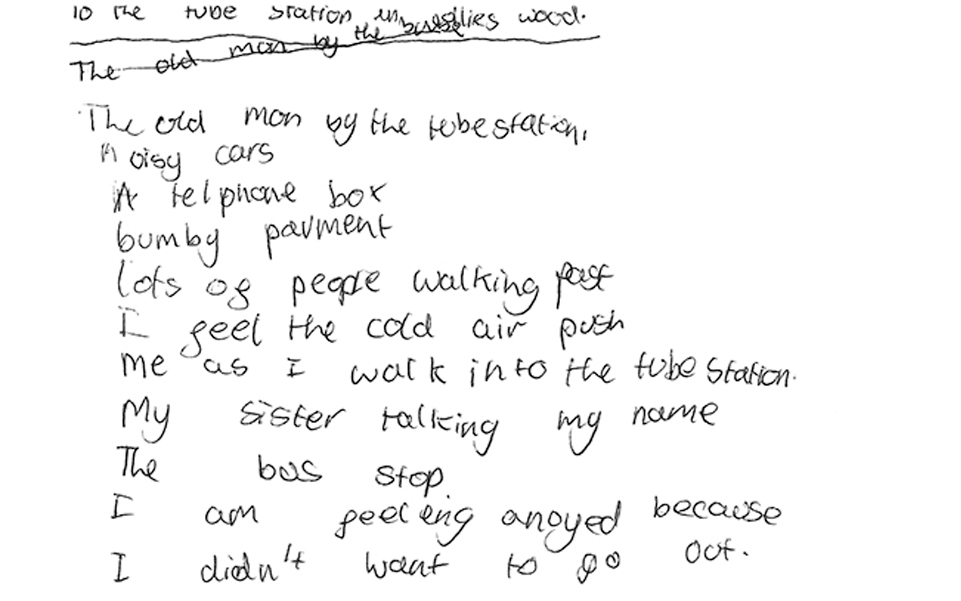 to the tube station in wood.
The old man by the
The old man by the tube station,
noisy cars
A telphone box
bumby pavment
lots of people walking past
I feel the cold air push
me as I walk into the tube station.
My sister talking my name
The bus stop
I am feeleing anoyed because
I didn't want to go out.